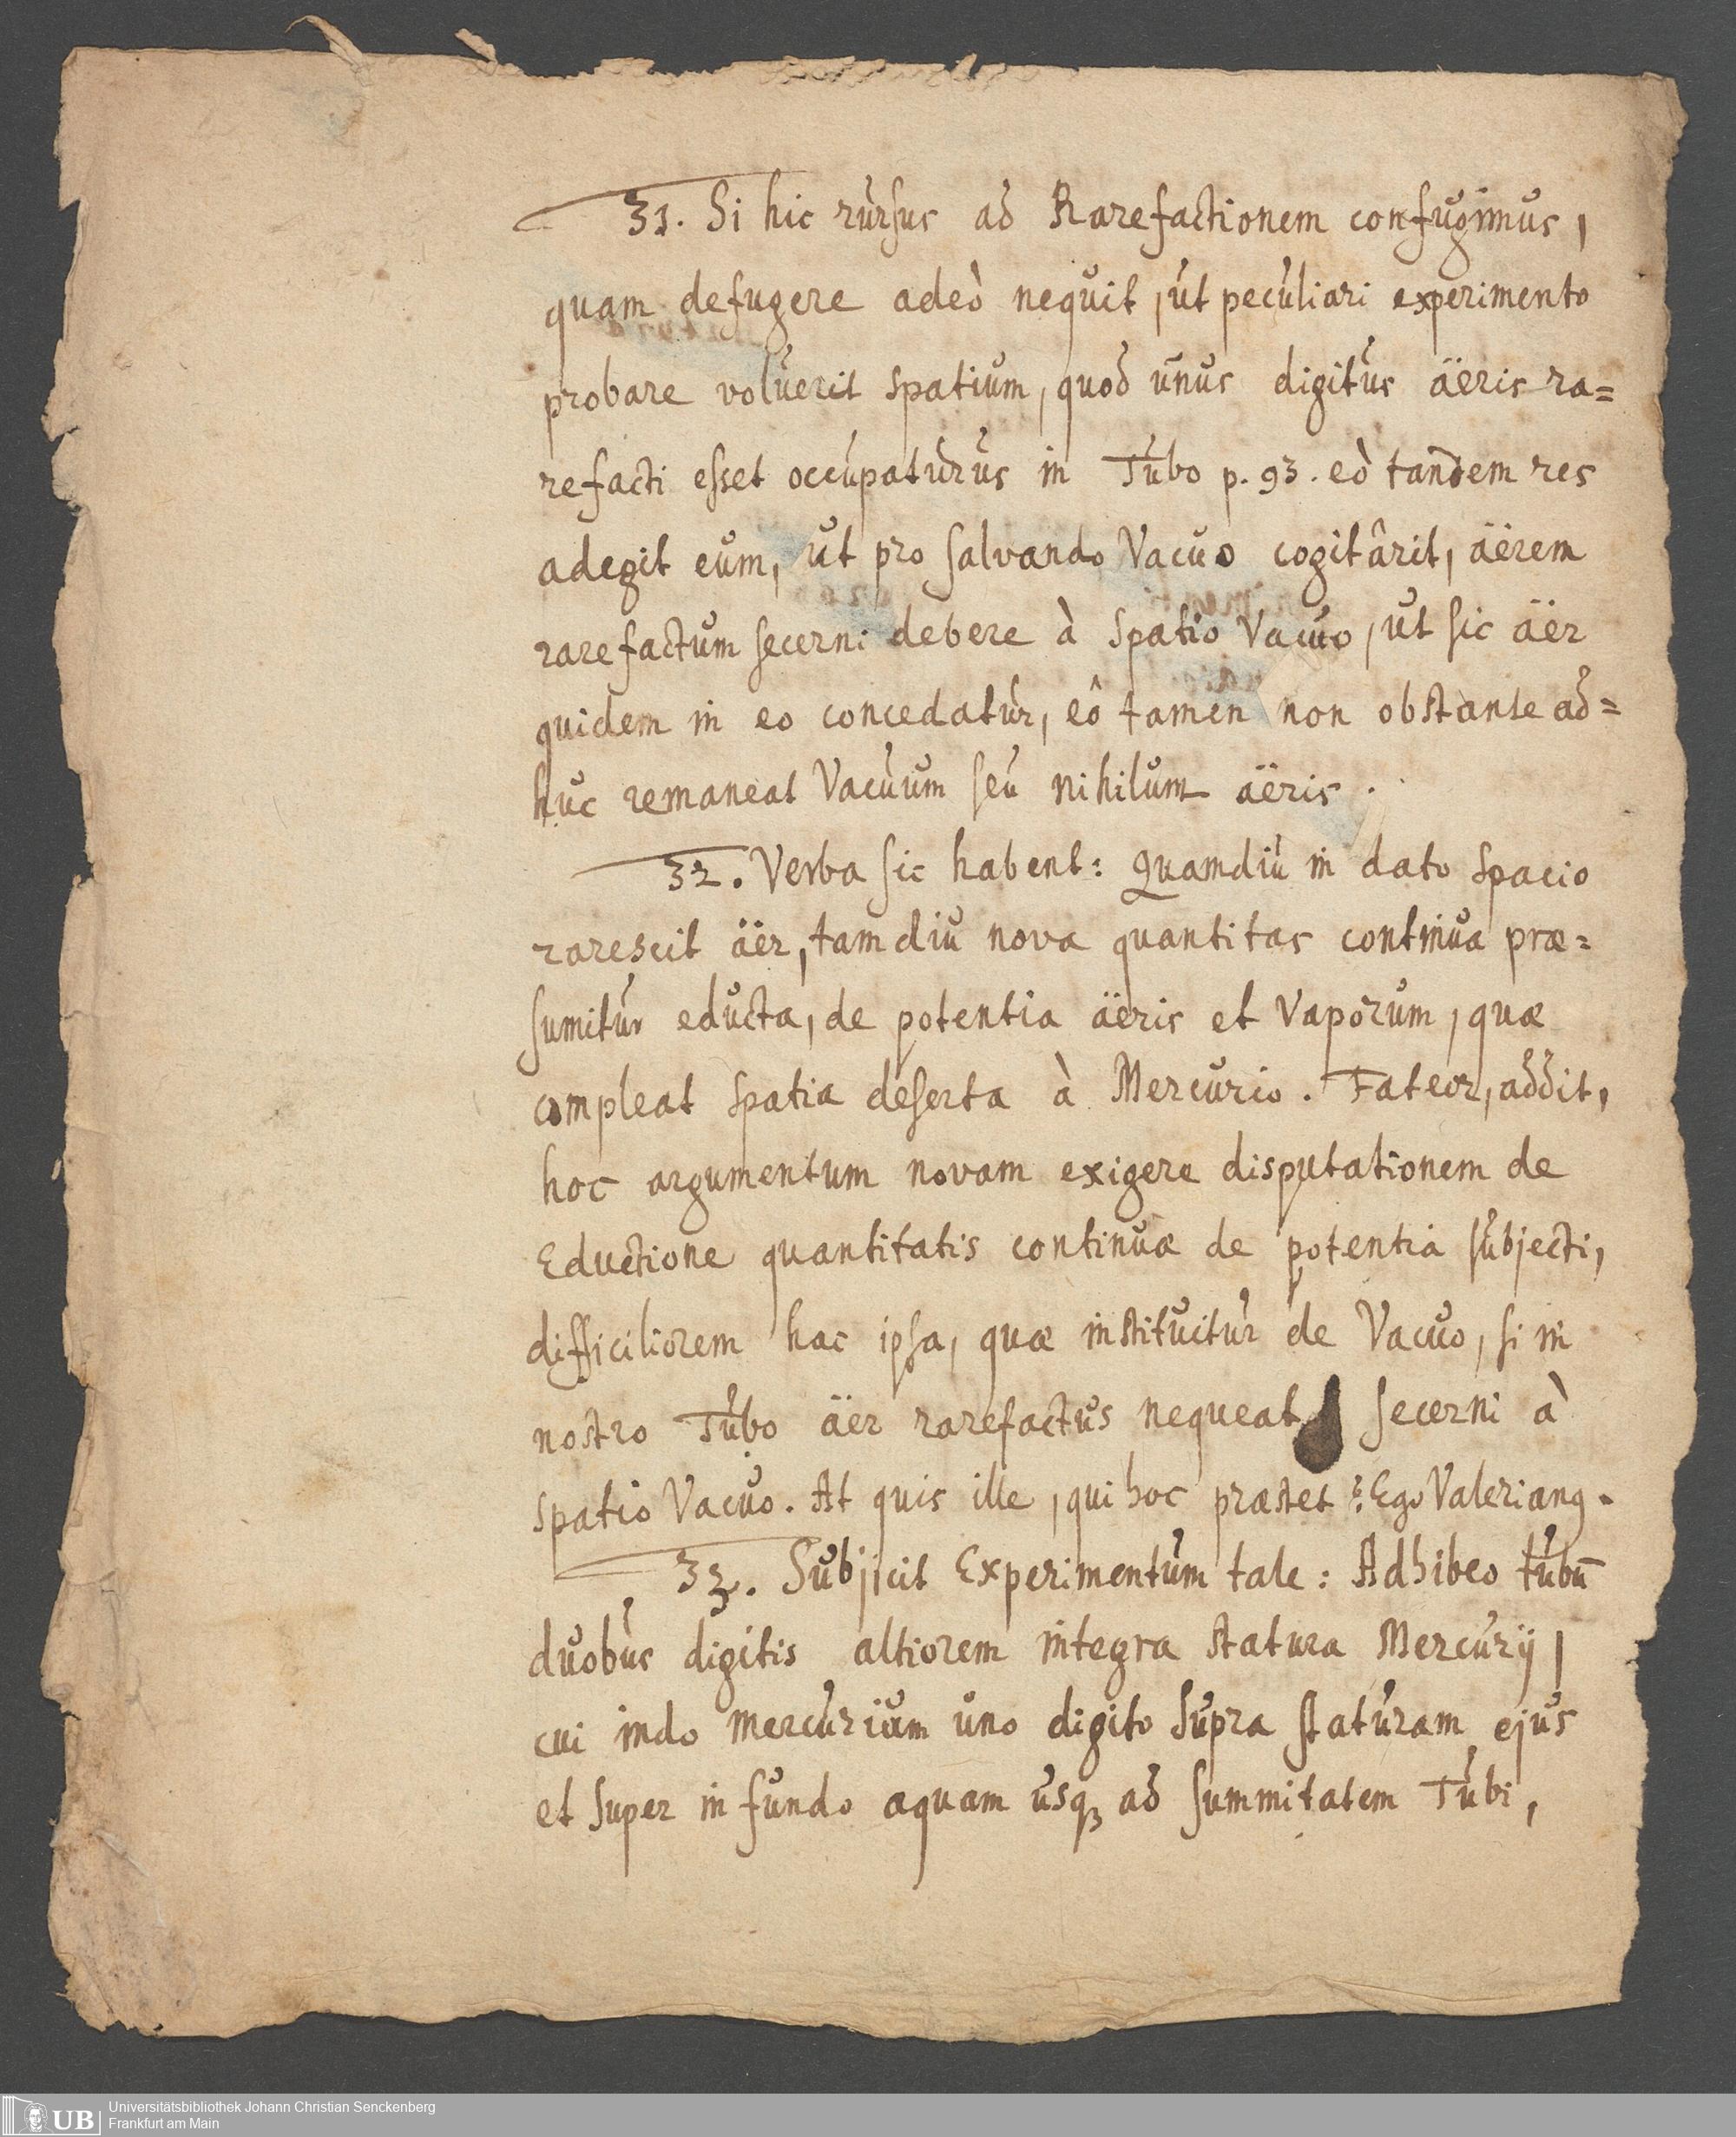 31. Si hic rursus ad Rarefactionem confugimus,
quam defugere adeò nequit, ut peculiari experimento
probare voluerit spatium, quod unus digitus äeris ra=
refacti esset occupaturus in Tubo p. 93. eò tandem res
adegit eum, ut pro salvando Vacuo cogitârit, äerem
rarefactum secerni debere à spatio Vacuo, ut sic äer
quidem in eo concedatur, eô tamen non obstante ad=
huc remaneat Vacuum seu nihilum äeris.
32. Verba sic habent: Quamdiu in dato spacio
rarescit äer, tamdiu nova quantitas continua præ=
sumitur educta, de potentia äeris et Vaporum, quæ
compleat spatia deserta à Mercurio. Fateor, addit,
hoc argumentum novam exigere disputationem de
Eductione quantitatis continuæ de potentia subjecti,
difficiliorem hac ipsa, quæ instituitur de Vacuo, si in
nostro Tubo äer rarefactus nequeat secerni à
spatio Vacuo. At quis ille, qui hoc præstet? Ego Valerianꝰ.
33. Subjicit Experimentum tale: Adhibeo tubū
duobus digitis altiorem integra statura Mercurij,
cui indo mercurium uno digito supra staturam ejus
et super infundo aquam usqꝫ ad summitatem Tubi,
UB
Universitätsbibliothek Johann Christian Senckenberg
Frankfurt am Main